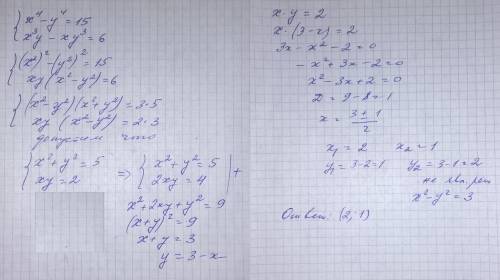 { x⁴ - y⁴ = 15
x³y - xy³ = 6
{ (x²)² - (y²)² = 15
xy (x² - y²) = 6
{ (x² - y²)(x² + y²) = 3·5
xy (x² - y²) = 2·3
допустим что
{ x² + y² = 5
xy = 2
=> { x² + y² = 5
2xy = 4 | +
x² + 2xy + y² = 9
(x + y)² = 9
x + y = 3
y = 3 - x
x · y = 2
x · (3 - x) = 2
3x - x² - 2 = 0
- x² + 3x - 2 = 0
x² - 3x + 2 = 0
D = 9 - 8 = 1
x = (3 ± 1)/2
x₁ = 2 x₂ = 1
y₁ = 3 - 2 = 1 y₂ = 3 - 1 = 2
не явл. реш
x² - y² = 3
Ответ: (2; 1)